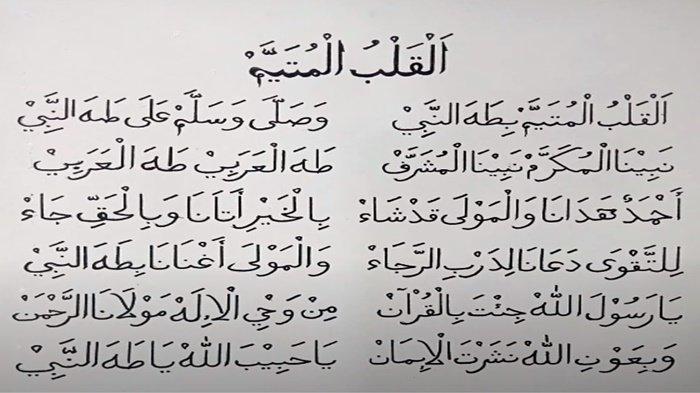 اَلْقَلْبُ الْمُتَيَّمْ
اَلْقَلْبُ الْمُتَيَّمْ بِطَهَ النَّبِيْ وَصَلَّى وَسَلَّمْ عَلَى طَهَ النَّبِيْ
نَبِيْنَا الْمُكَرَّمْ نَبِيْنَا الْمُشَرَّفْ طَهَ الْعَرَبِيْ طَهَ الْعَرَبِيْ
أَحْمَدْ هَدَانَا وَالْمَوْلَى قَدْ شَاءْ بِالْخَيْرِ أَتَانَا وَبِالْحَقِّ جَاءْ
لِلتَّقْوَى دَعَانَا لِدَرْبِ الرَّجَاءْ وَالْمَوْلَى أَغْنَانَا بِطَهَ النَّبِيْ
يَا رَسُوْلَ اللهْ جِئْتَ بِالْقُرْآنْ مِنْ وَحْيِ الْاِلَهْ مَوْلَانَا الرَّحْمَنْ
وَبِعَوْنِ اللهْ نَشَرْتَ الْاِيْمَانْ يَا حَبِيْبَ اللهْ يَا طَهَ النَّبِيْ